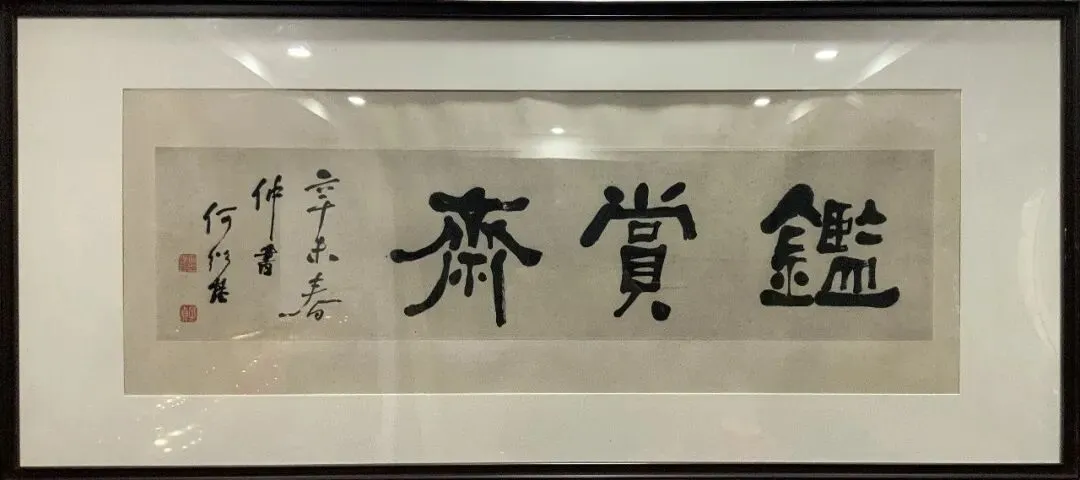 鑑賞齋
辛未春
仲書
何